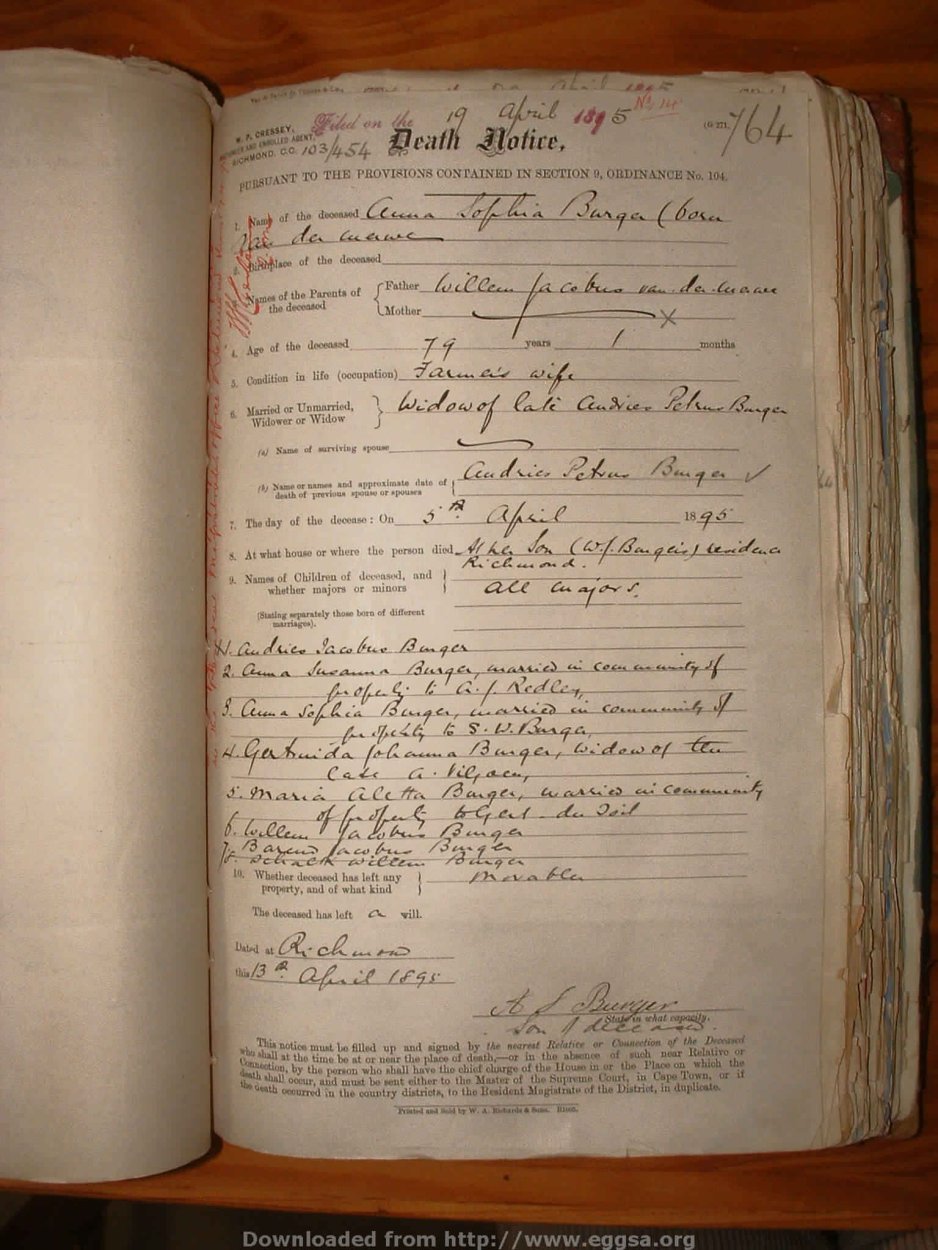 Filed on the 19 April 1895 No 14
W. P. CRESSEY,
AND ENROLLED AGENT,
RICHMOND. C.C. 103/454
764
Death Notice,
PURSUANT TO THE PROVISIONS CONTAINED IN SECTION 9, ORDINANCE No. 104.
1. Name of the deceased Anna Sophia Burger (born
van der merwe
2. Birthplace of the deceased
3. Names of the Parents of the deceased { Father Willem Jacobus van der merwe
Mother X
4. Age of the deceased 79 years 1 months
5. Condition in life (occupation) Farmer's wife
6. Married or Unmarried, Widower or Widow } Widow of late Andries Petrus Burger
(a) Name of surviving spouse
(b) Name or names and approximate date of death of previous spouse or spouses { Andries Petrus Burger ✓
7. The day of the decease: On 5th April 1895
8. At what house or where the person died At her Son (W.J. Burger's) residence
Richmond.
9. Names of Children of deceased, and whether majors or minors } all majors.
(Stating separately those born of different marriages).
1. Andries Jacobus Burger
2. Anna Susanna Burger, married in community of
property to A. J. Redley,
3. Anna Sophia Burger, married in community of
property to S. W. Burger,
4. Gertruida Johanna Burger, widow of the
late A. Viljoen,
5. Maria Aletta Burger, married in community
of property to Gert du Toit
6. Willem Jacobus Burger
7. Barend Jacobus Burger
8. Schalk Willem Burger
10. Whether deceased has left any property, and of what kind } Movables
The deceased has left a will.
Dated at Richmond
this 13th April 1895
A J Burger
State in what capacity.
Son of deceased.
This notice must be filled up and signed by the nearest Relative or Connection of the Deceased
who shall at the time be at or near the place of death,—or in the absence of such near Relative or
Connection, by the person who shall have the chief charge of the House in or the Place on which the
death shall occur, and must be sent either to the Master of the Supreme Court, in Cape Town, or if
the death occurred in the country districts, to the Resident Magistrate of the District, in duplicate.
Printed and Sold by W. A. Richards & Sons.
Downloaded from http://www.eggsa.org